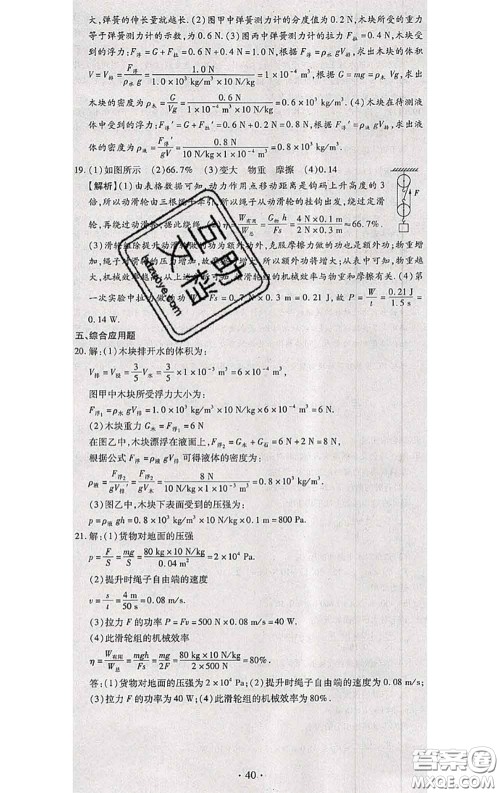 大,弹簧的伸长量就越长.(2)图甲中弹簧测力计的分度值为0.2 N,木块所受的重力
等于弹簧测力计的示数,为0.6 N.(3)图丙中弹簧测力计的拉力F=0.4 N,求出木块受
到的浮力:F浮=G+F=0.6 N+0.4 N=1.0 N,根据F浮=ρ水gV排,求出木块的体积
V=V排=F浮/ρ水g=1.0 N/1.0×10³ kg/m³×10 N/kg=1×10⁻⁴ m³,根据G=mg=ρ木Vg,求出
木块的密度为ρ木=G/Vg=0.6 N/1×10⁻⁴ m³×10 N/kg=0.6×10³ kg/m³.(4)木块在待测液
体中受到的浮力:F浮′=G+F′=0.6 N+0.2 N=0.8 N,根据F浮′=ρ液gV排,求出液
体的密度为ρ液=F浮′/gV=0.8 N/10 N/kg×1×10⁻⁴ m³=0.8×10³ kg/m³.
19.(1)如图所示 (2)66.7% (3)变大 物重 摩擦 (4)0.14
【解析】(1)由表格数据可知,动力作用点移动距离是钩码上升高度的3
倍,所以动滑轮由三根绳子牵引,所以绳子从动滑轮的挂钩处向定滑
轮,再绕过动滑轮,据此绕绳.(2)η=W有用/W总=G物h/Fs=4 N×0.1 m/2 N×0.3 m≈66.7%.
(3)滑轮组除提升动滑轮做的功为额外功外,克服摩擦力做的功也是额外功;物重增
加,绳子对滑轮的压力增加,故摩擦增大,所以额外功将增大;从表中可知,物重越
大,机械效率越高,从上述可知滑轮组的机械效率与物重和摩擦有关.(4)第
一次实验中拉力做的功W=Fs=0.7 N×0.3 m=0.21 J,故P=W/t=0.21 J/1.5 s=
0.14 W.
五、综合应用题
20.解:(1)木块排开水的体积为:
V排=V浸=3/5V木=3/5×1×10⁻³ m³=6×10⁻⁴ m³,
图甲中木块所受浮力大小为:
F浮₁=ρ水gV排=1.0×10³ kg/m³×10 N/kg×6×10⁻⁴ m³=6 N.
(2)木块重力G木=F浮₁=6 N,
在图乙中,木块漂浮在液面上,F浮₂=G木+G石=6 N+2 N=8 N,
根据公式F浮=ρ液gV排可得液体的密度为:
ρ液=F浮₂/gV排=F浮₂/gV木=8 N/10 N/kg×1×10⁻³ m³=0.8×10³ kg/m³.
(3)图乙中,木块下表面受到的压强为:
p=ρ液gh=0.8×10³ kg/m³×10 N/kg×0.1 m=800 Pa.
21.解:(1)货物对地面的压强
p=F/S=mg/S=80 kg×10 N/kg/0.04 m²=2×10⁴ Pa.
(2)提升时绳子自由端的速度
v=s/t=4 m/50 s=0.08 m/s.
(3)拉力F的功率P=Fv=500 N×0.08 m/s=40 W.
(4)此滑轮组的机械效率
η=W有用/W总=mgh/Fs=mg/2F=80 kg×10 N/kg/2×500 N=80%.
答:(1)货物对地面的压强为2×10⁴ Pa;(2)提升时绳子自由端的速度为0.08 m/s;
(3)拉力F的功率为40 W;(4)此滑轮组的机械效率为80%.
F
· 40 ·